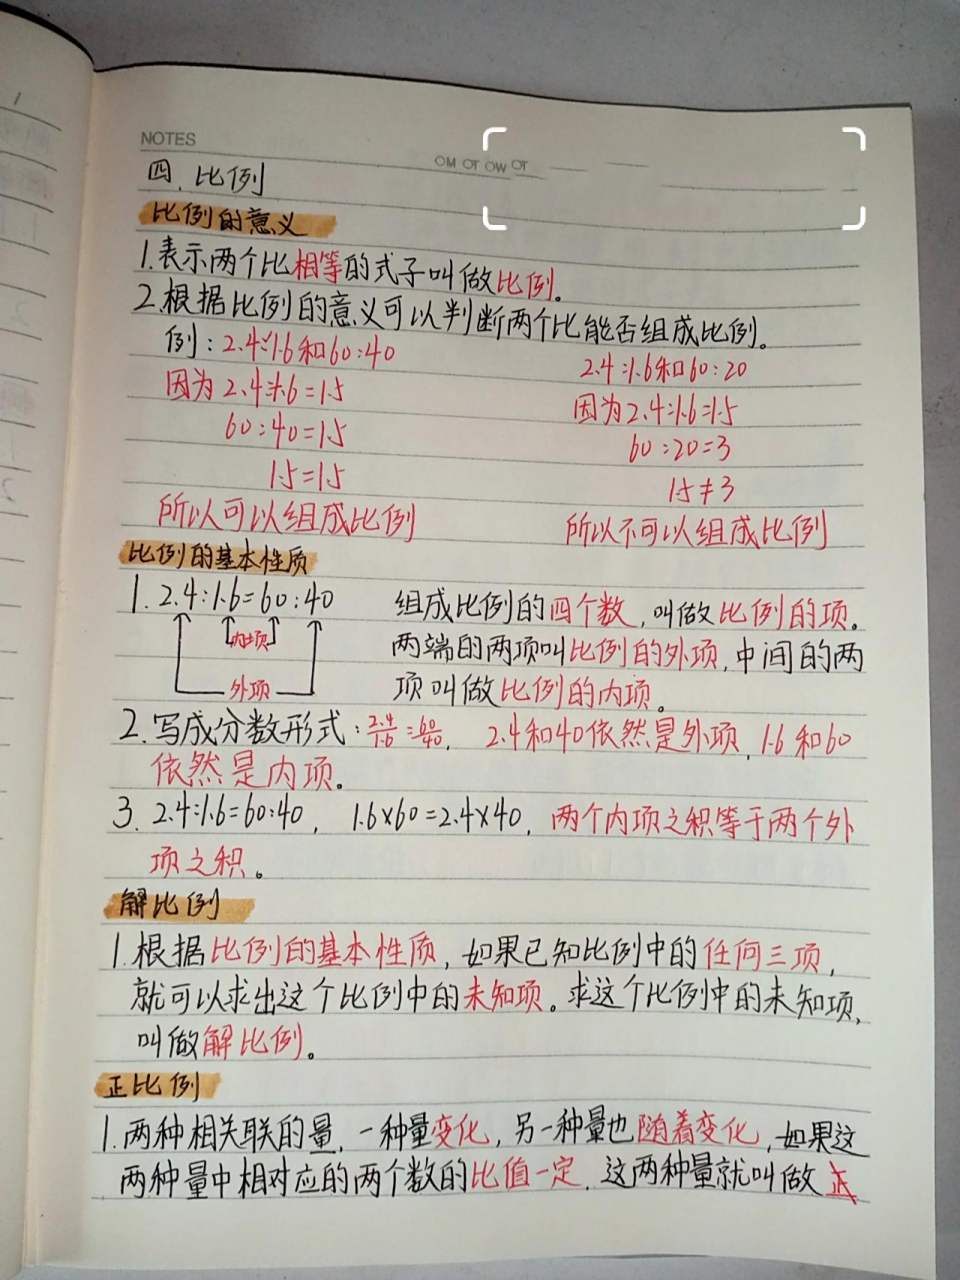 NOTES
OM OT OW OT
四、比例
比例的意义
1.表示两个比相等的式子叫做比例。
2.根据比例的意义可以判断两个比能否组成比例。
例:2.4:1.6和60:40
2.4:1.6和60:20
因为2.4:1.6=1.5
因为2.4:1.6=1.5
60:40=1.5
60:20=3
1.5=1.5
1.5≠3
所以可以组成比例
所以不可以组成比例
比例的基本性质
1. 2.4:1.6=60:40
内项
外项
组成比例的四个数,叫做比例的项。
两端的两项叫比例的外项,中间的两
项叫做比例的内项。
2.写成分数形式:2.4/1.6=60/40, 2.4和40依然是外项,1.6和60
依然是内项。
3. 2.4:1.6=60:40, 1.6×60=2.4×40, 两个内项之积等于两个外
项之积。
解比例
1.根据比例的基本性质,如果已知比例中的任何三项,
就可以求出这个比例中的未知项。求这个比例中的未知项,
叫做解比例。
正比例
1.两种相关联的量,一种量变化,另一种量也随着变化,如果这
两种量中相对应的两个数的比值一定,这两种量就叫做正